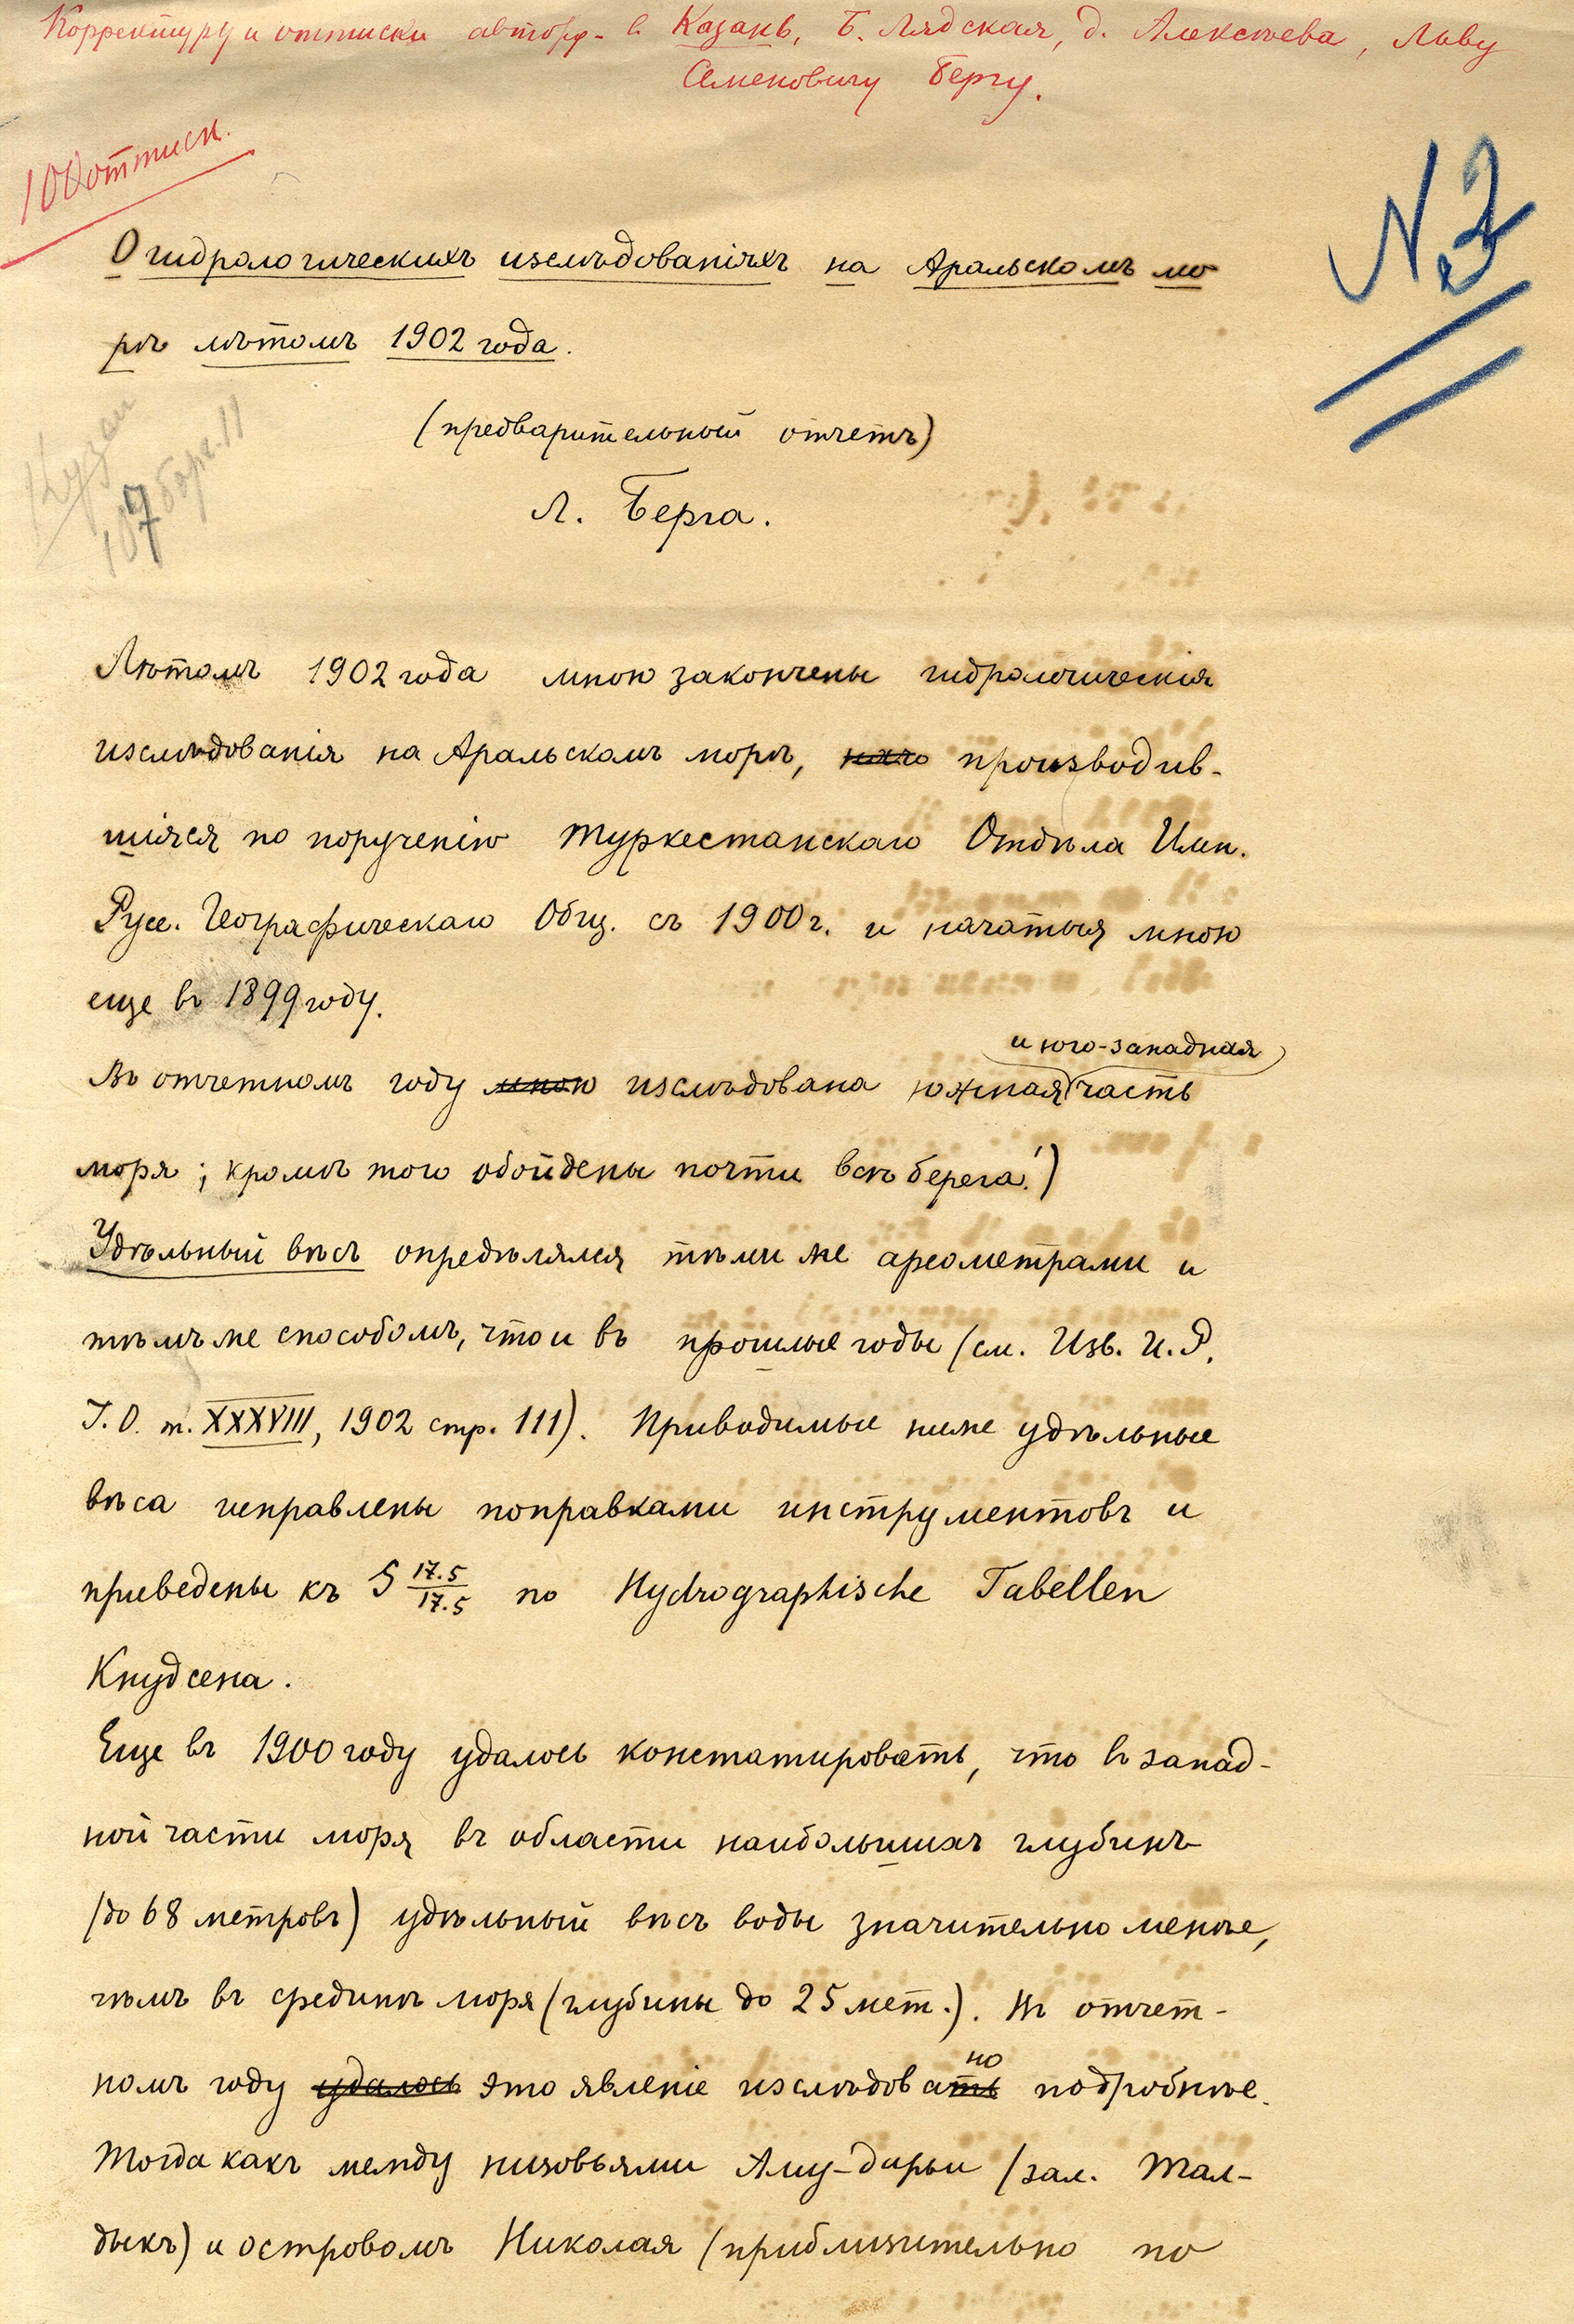 Корректуру и оттиски автору - в Казань, Б. Лядская, д. Алексѣева, Льву
Семеновичу Бергу.
100 оттиск.
№ 2
О гидрологическихъ изслѣдованіяхъ на Аральскомъ мо
рѣ лѣтомъ 1902 года.
(предварительный отчетъ)
Л. Берга.
Лѣтомъ 1902 года мною закончены гидрологическія
изслѣдованія на Аральскомъ морѣ, производив-
шіяся по порученію Туркестанскаго Отдѣла Имп.
Русс. Географическаго Общ. съ 1900 г. и начатыя мною
еще въ 1899 году.
и юго-западная
Въ отчетномъ году мною изслѣдована южная часть
моря; кромѣ того обойдены почти всѣ берега.¹)
Удѣльный вѣсъ опредѣлялся тѣми же ареометрами и
тѣмъ же способомъ, что и въ прошлые годы (см. Изв. И. Р.
Г. О. т. XXXVIII, 1902 стр. 111). Приводимые ниже удѣльные
вѣса исправлены поправками инструментовъ и
приведены къ S 17.5/17.5 по Hydrographische Tabellen
Кнудсена.
Еще въ 1900 году удалось констатировать, что въ запад-
ной части моря въ области наибольшихъ глубинъ
(до 68 метровъ) удѣльный вѣсъ воды значительно менѣе,
чѣмъ въ срединѣ моря (глубины до 25 мет.). Въ отчет-
но
номъ году удалось это явленіе изслѣдовать подробнѣе.
Тогда какъ между низовьями Аму-дарьи (зал. Тал-
дыкъ) и островомъ Николая (приблизительно по